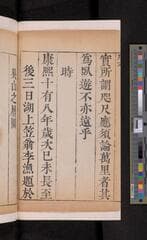 實所謂咫尺應須論萬里者其
為臥遊不亦遠乎
時
康熙十有八年歲次己未長至
後三日湖上笠翁李漁題於